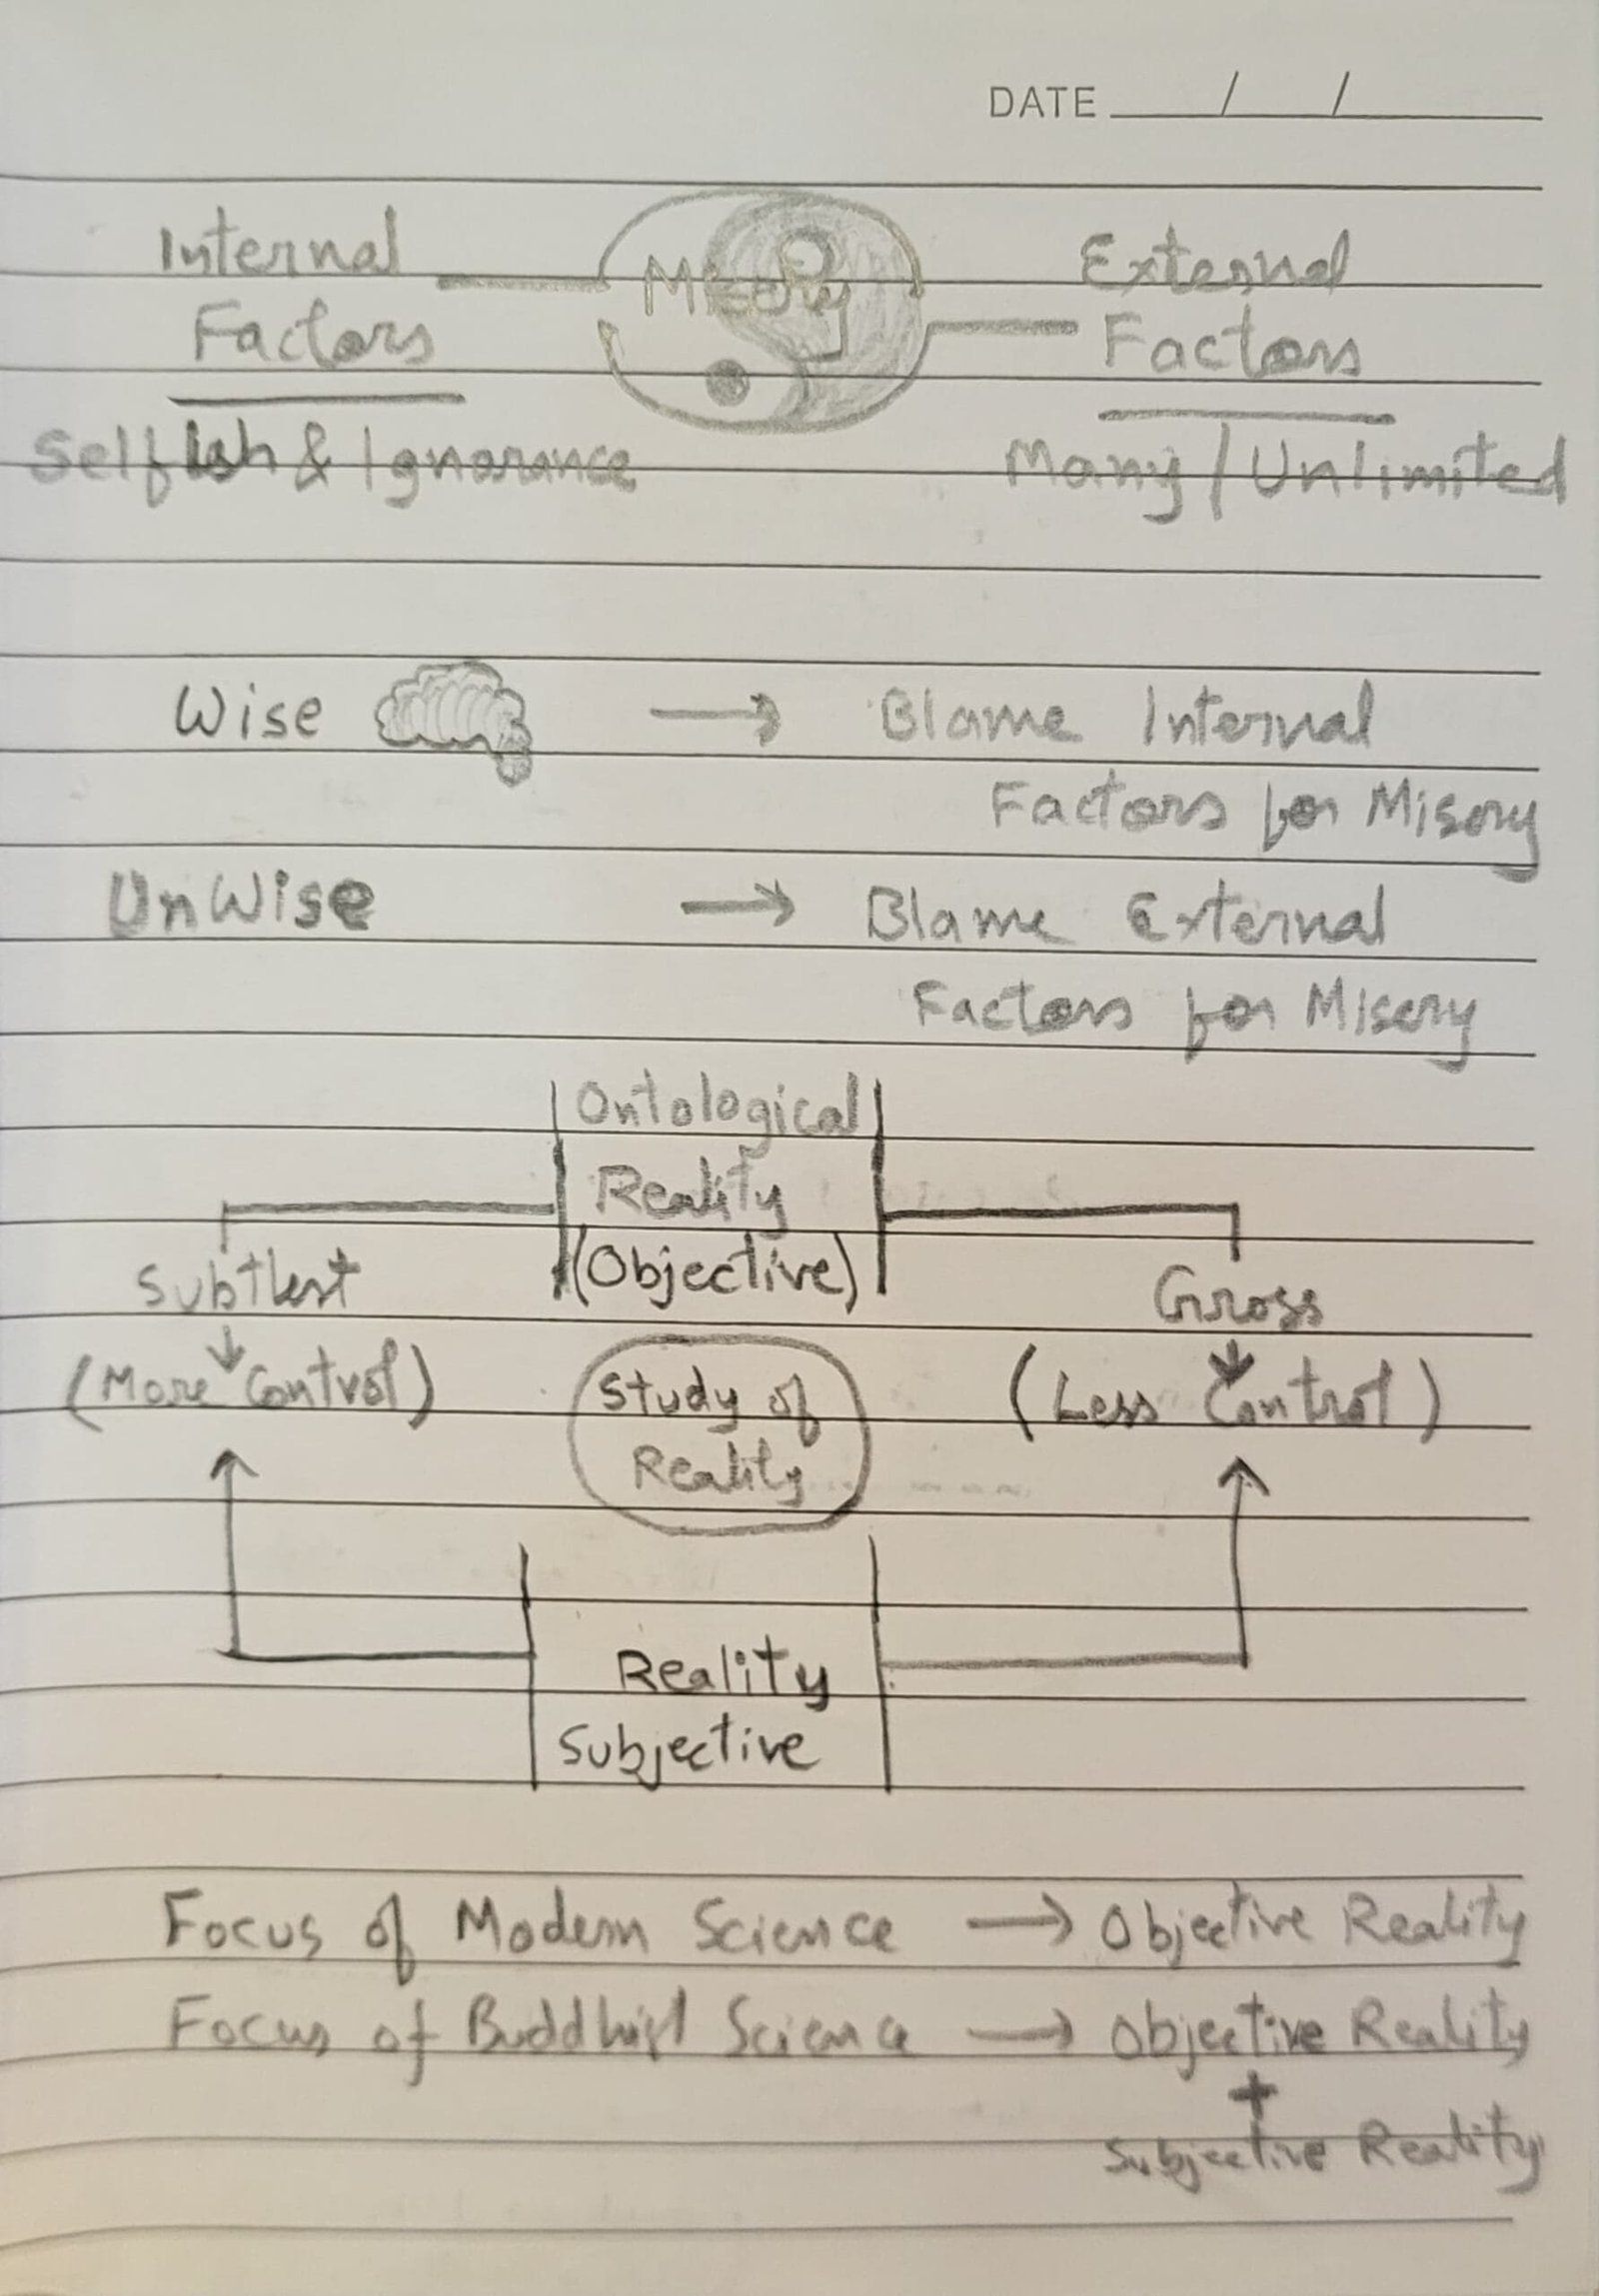 DATE / /
Internal Misery External
Factors Factors
Selfish & Ignorance Many / Unlimited
Wise → Blame Internal
Factors for Misery
UnWise → Blame External
Factors for Misery
Ontological
Reality
(Objective)
Subtlest Gross
(More Control) Study of (Less Control)
Reality
Reality
Subjective
Focus of Modern Science → Objective Reality
Focus of Buddhist Science → Objective Reality
+
Subjective Reality